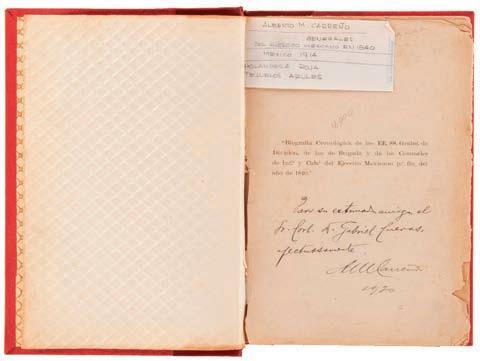 ALBERTO M. CARREÑO
GENERALES
DEL EJERCITO MEXICANO EN 1840
MEXICO 1914
HOLANDESA ROJA
TEJUELOS AZULES
"Biografia Cronológica de los EE. SS. Grales. de
División, de los de Brigada y de los Coroneles
de Inf.ª y Cab.ª del Ejercito Mexicano p.ª fin del
año de 1840."
Para su estimado amigo el
Sr. Cort. D. Gabriel Cuevas,
afectuosamente.
AMCarreño
1920